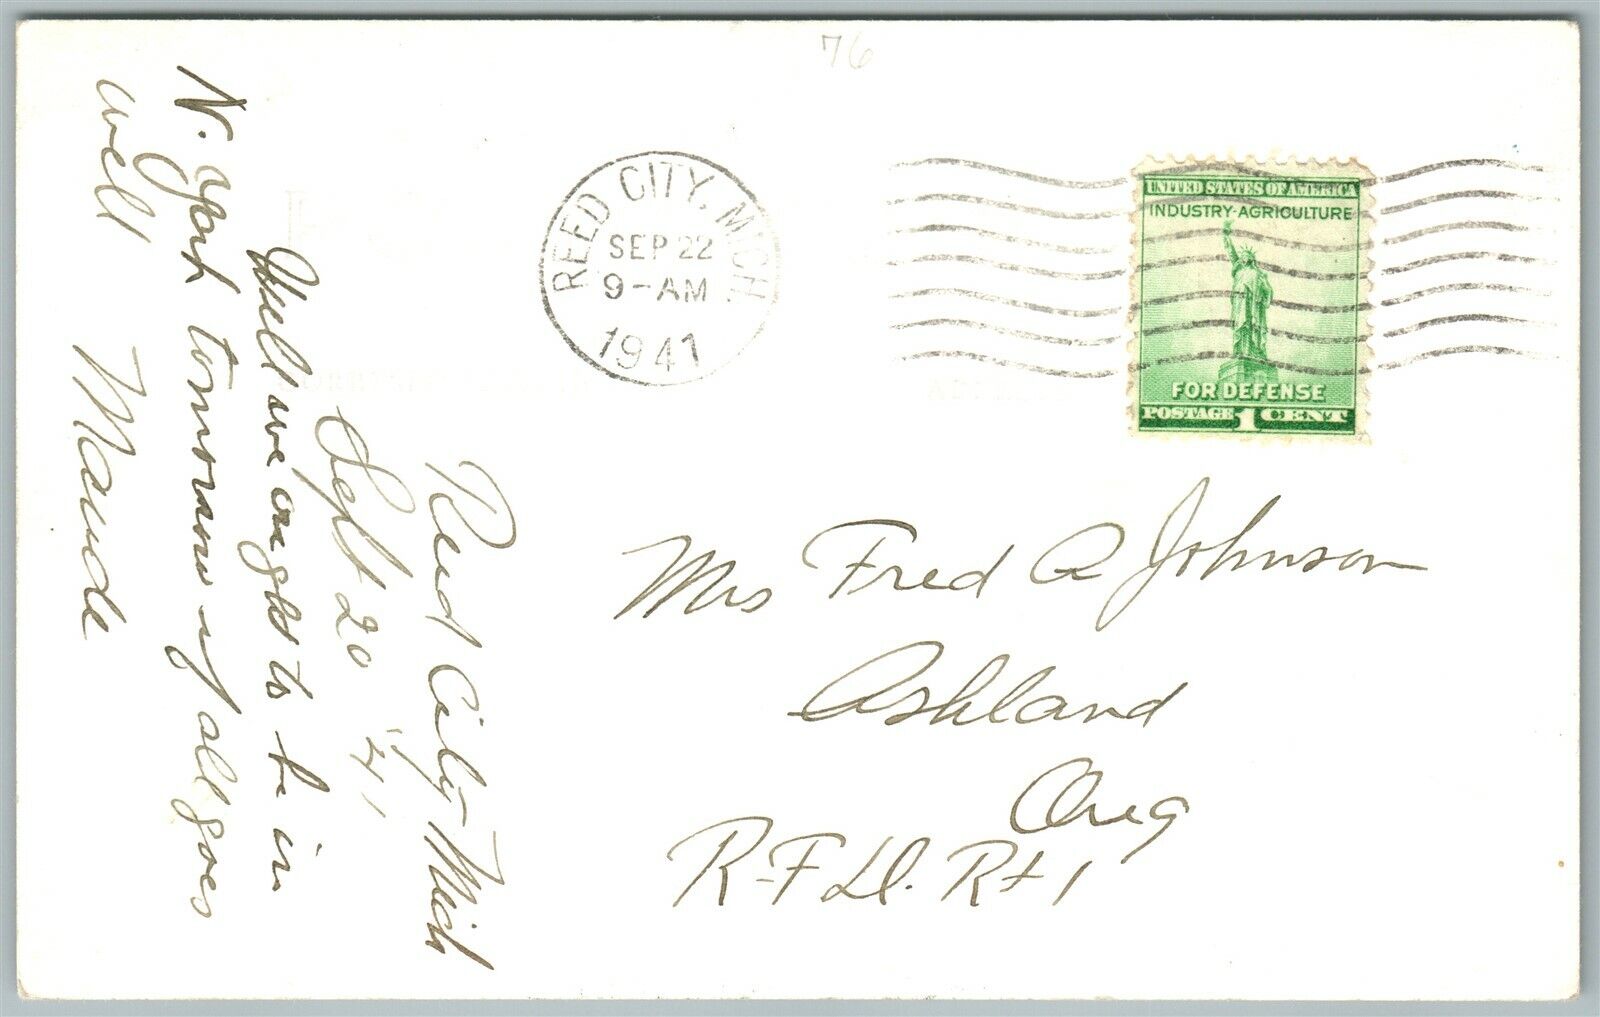 76
REED CITY, MICH
SEP 22
9-AM
1941
UNITED STATES OF AMERICA
INDUSTRY-AGRICULTURE
FOR DEFENSE
POSTAGE 1 CENT
Reed City Mich
Sept 20 '41
Well we ought to be in
N. York tomorrow if all goes
well
Maude
Mrs Fred A Johnson
Ashland
Oreg
R-F.D. Rt 1